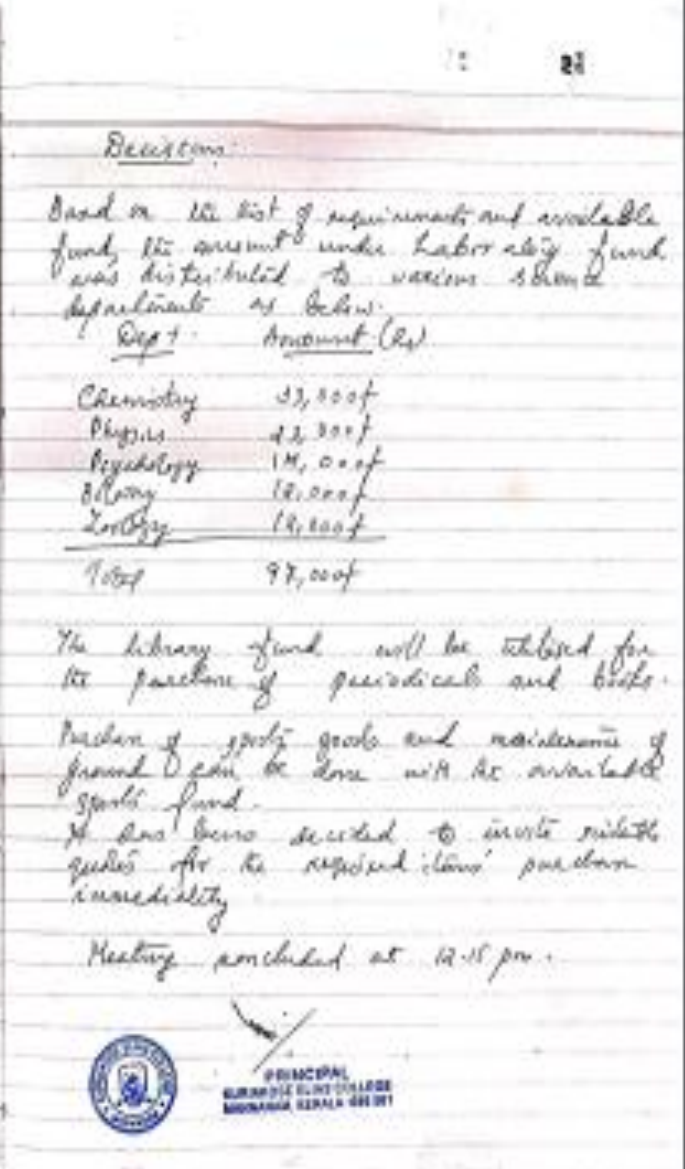 Decisions:
Based on the list of requirements and available
fund, the amount under Laboratory fund
was distributed to various science
departments as below.
Dept. Amount (Rs)
Chemistry 23,000/-
Physics 22,000/-
Psychology
Botany 18,000/-
Zoology
Total
The library fund will be utilised for
the purchase of periodicals and books.
Purchase of sports goods and maintenance of
ground can be done with the available
sports fund.
It has been decided to invite suitable
quotes for the required items' purchase
immediately
Meeting concluded at 12.15 pm.
PRINCIPAL
KURIAKOSE ELIAS COLLEGE
MANNANAM, KERALA